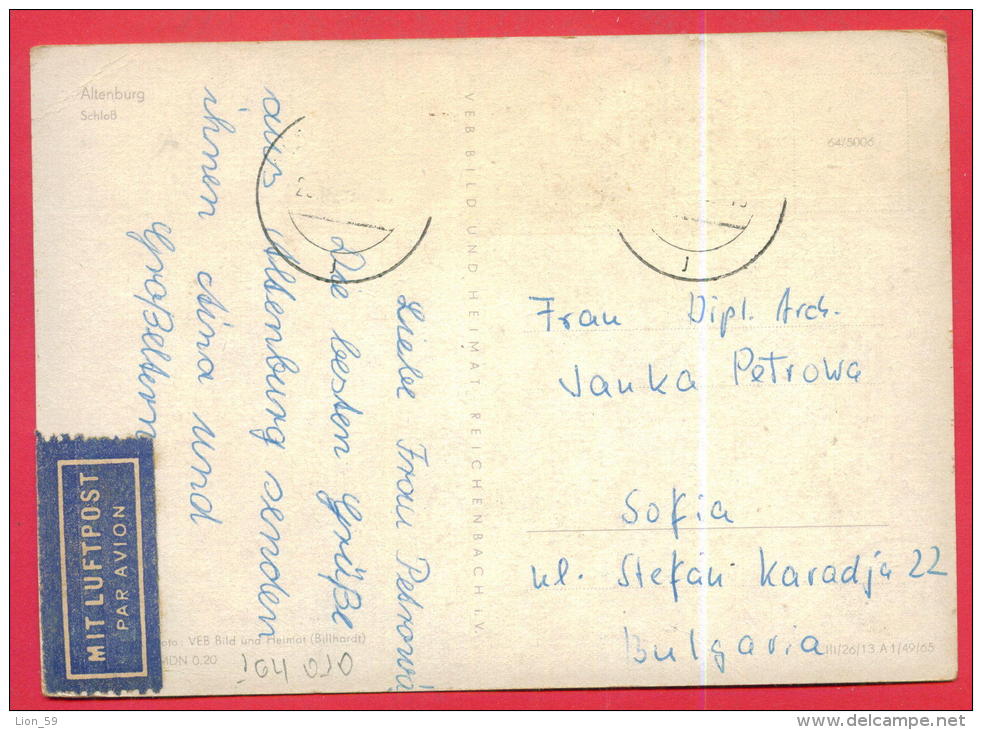 Altenburg
Schloß
64/5006
Liebe Frau Petrowa,
Die besten Grüße
aus Altenburg senden
ihnen Nina und
Großeltern
VEB BILD UND HEIMAT, REICHENBACH i. V.
Frau Dipl. Arch.
Janka Petrowa
Sofia
ul. Stefan Karadja 22
Bulgaria
MIT LUFTPOST
PAR AVION
oto: VEB Bild und Heimat (Billhardt)
MDN 0.20
III/26/13 A 1/49/65
Lion_59
www.delcampe.net